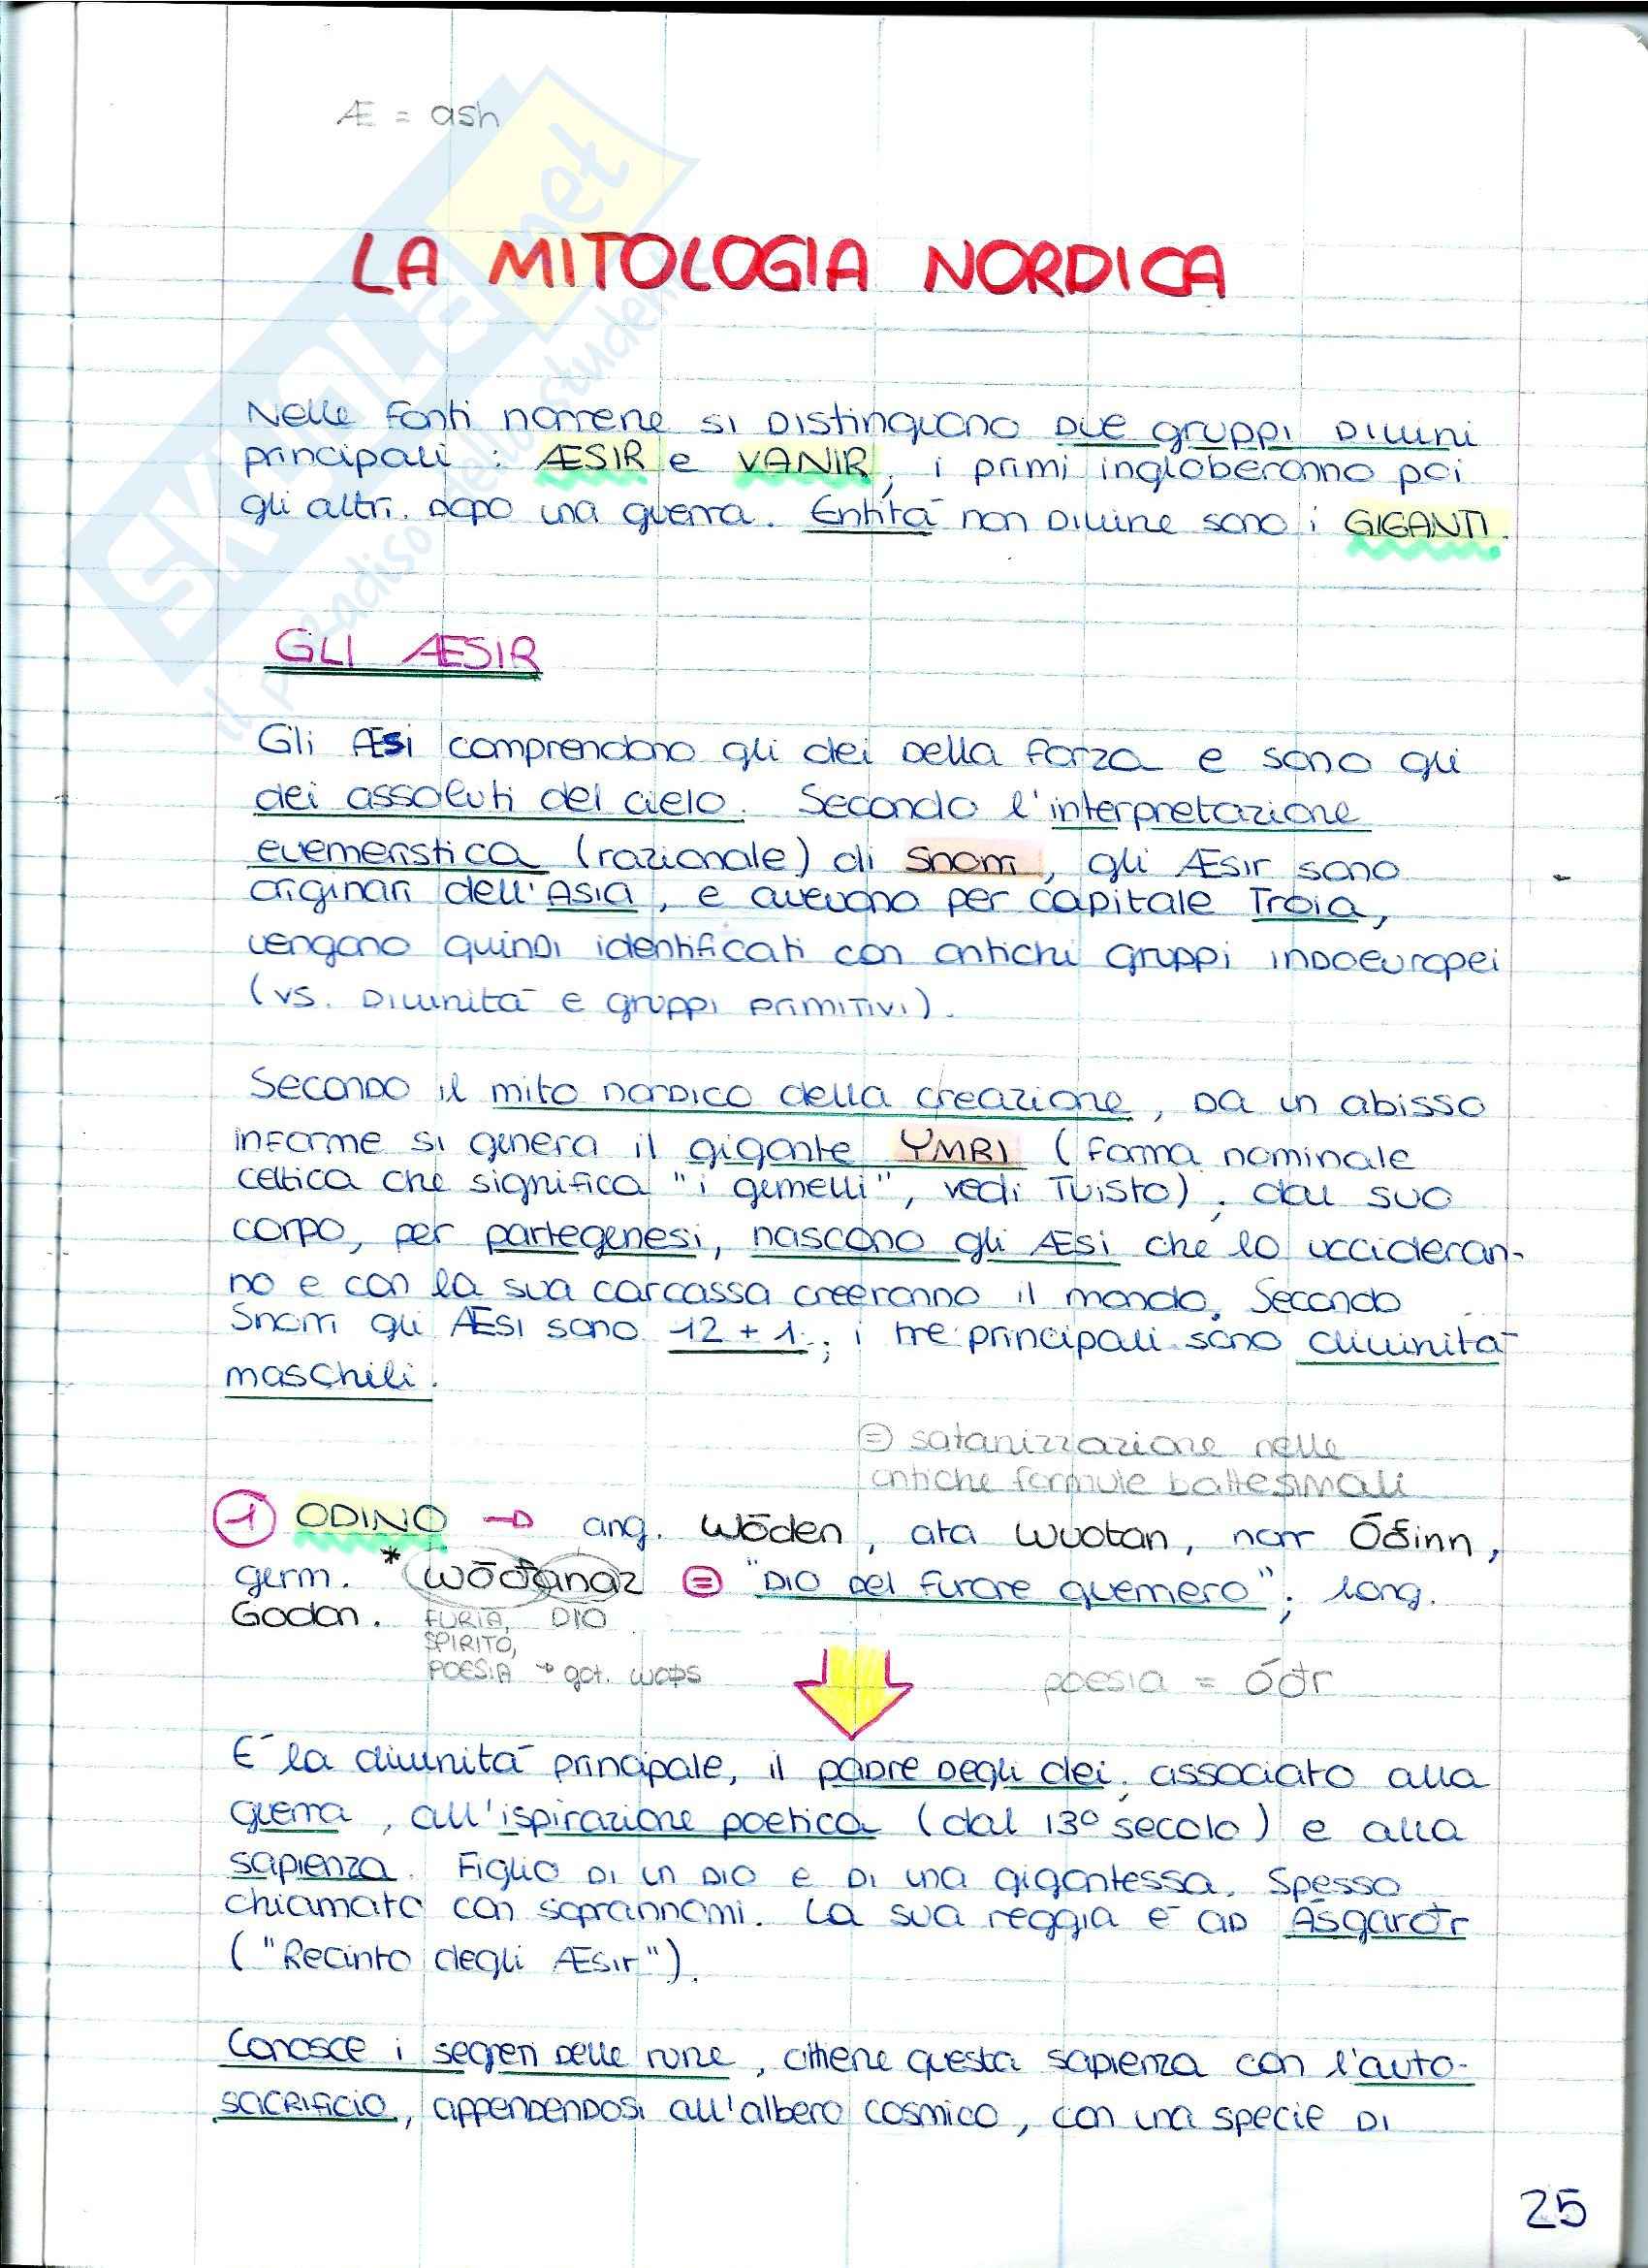 Æ = ash
LA MITOLOGIA NORDICA
Nelle fonti norrene si distinguono due gruppi divini
principali : ÆSIR e VANIR, i primi ingloberanno poi
gli altri dopo una guerra. Entità non divine sono i GIGANTI.
GLI ÆSIR
Gli Æsi comprendono gli dei della forza e sono gli
dei assoluti del cielo. Secondo l'interpretazione
evemeristica (razionale) di Snorri, gli ÆSIR sono
originari dell'ASIA, e avevano per capitale Troia,
vengono quindi identificati con antichi gruppi indoeuropei
(vs. divinità e gruppi primitivi).
Secondo il mito nordico della creazione, da un abisso
informe si genera il gigante YMRI (forma nominale
celtica che significa "i gemelli", vedi Tuisto); dal suo
corpo, per partegenesi, nascono gli Æsi che lo uccideran-
no e con la sua carcassa creeranno il mondo. Secondo
Snorri gli ÆSI sono 12 + 1; i tre principali sono divinità
maschili.
= satanizzazione nelle
antiche formule battesimali
1 ODINO → ang. Wōden, ata Wuotan, norr Óðinn,
germ. *wōđanaz = "Dio del furore guerriero"; long.
Godan. FURIA, DIO
SPIRITO,
POESIA → got. woþs
poesia = óđr
E' la divinità principale, il padre degli dei, associato alla
guerra, all'ispirazione poetica (dal 13° secolo) e alla
sapienza. Figlio di un dio e di una gigantessa. Spesso
chiamato con soprannomi. La sua reggia è ad Ásgarđr
("Recinto degli Æsir").
Conosce i segreti delle rune, ottiene questa sapienza con l'auto-
sacrificio, appendendosi all'albero cosmico, con una specie di
25
SKUOLA.net
il paradiso dello studente